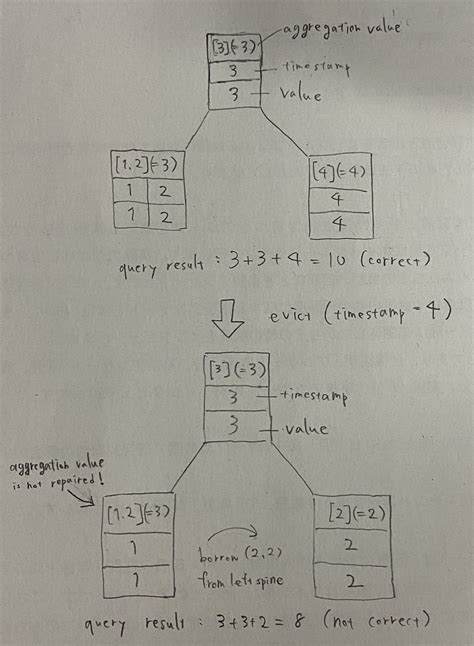 [3](=3) aggregation value
3 timestamp
3 value
[1,2](=3) [4](=4)
1 2 4
1 2 4
query result : 3+3+4 = 10 (correct)
evict (timestamp = 4)
[3](=3)
3 timestamp
3 value
aggregation value
is not repaired!
[1,2](=3) [2](=2)
1 borrow (2,2) 2
1 from left spine 2
query result : 3+3+2 = 8 (not correct)